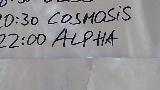 20:30 COSMOSiS
22:00 ALPHA